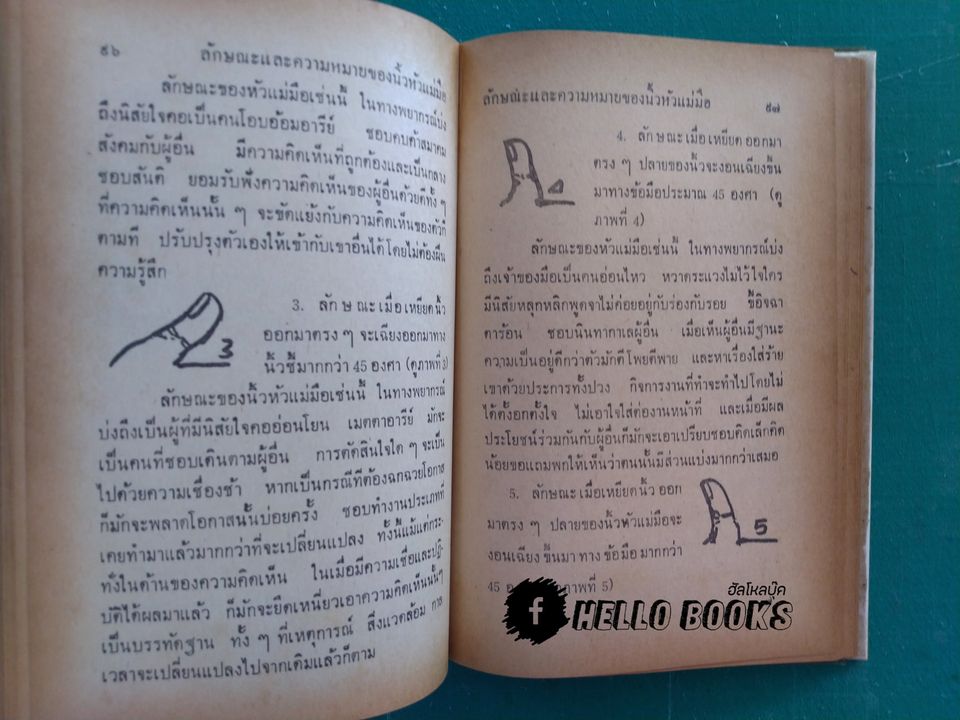 ๕๖ ลักษณะและความหมายของนิ้วหัวแม่มือ
ลักษณะของหัวแม่มือเช่นนี้ ในทางพยากรณ์บ่ง
ถึงนิสัยใจคอเป็นคนโอบอ้อมอารีย์ ชอบคบค้าสมาคม
สังคมกับผู้อื่น มีความคิดเห็นที่ถูกต้องและเป็นกลาง
ชอบสันติ ยอมรับฟังความคิดเห็นของผู้อื่นด้วยดีทั้ง ๆ
ที่ความคิดเห็นนั้น ๆ จะขัดแย้งกับความคิดเห็นของตัวก็
ตามที ปรับปรุงตัวเองให้เข้ากับเขาอื่นได้โดยไม่ต้องฝืน
ความรู้สึก
3. ลักษณะเมื่อเหยียดนิ้ว
ออกมาตรง ๆ จะเฉียงออกมาทาง
นิ้วชี้มากกว่า 45 องศา (ดูภาพที่ 3)
3
ลักษณะของนิ้วหัวแม่มือเช่นนี้ ในทางพยากรณ์
บ่งถึงเป็นผู้ที่มีนิสัยใจคออ่อนโยน เมตตาอารีย์ มักจะ
เป็นคนที่ชอบเดินตามผู้อื่น การตัดสินใจใด ๆ จะเป็น
ไปด้วยความเชื่องช้า หากเป็นกรณีที่ต้องฉกฉวยโอกาส
ก็มักจะพลาดโอกาสนั้นบ่อยครั้ง ชอบทำงานประเภทที่
เคยทำมาแล้วมากกว่าที่จะเปลี่ยนแปลง ทั้งนี้แม้แต่กระ-
ทั่งในด้านของความคิดเห็น ในเมื่อมีความเชื่อและปฏิ-
บัติได้ผลมาแล้ว ก็มักจะยึดเหนี่ยวเอาความคิดเห็นนั้นๆ
เป็นบรรทัดฐาน ทั้ง ๆ ที่เหตุการณ์ สิ่งแวดล้อม กาล
เวลาจะเปลี่ยนแปลงไปจากเดิมแล้วก็ตาม
ลักษณะและความหมายของนิ้วหัวแม่มือ ๕๗
4. ลักษณะเมื่อเหยียดออกมา
ตรง ๆ ปลายของนิ้วจะงอนเฉียงขึ้น
มาทางข้อมือประมาณ 45 องศา (ดู
ภาพที่ 4)
4
ลักษณะของหัวแม่มือเช่นนี้ ในทางพยากรณ์บ่ง
ถึงเจ้าของมือเป็นคนอ่อนไหว หวาดระแวงไม่ไว้ใจใคร
มีนิสัยหลุกหลิกพูดจาไม่ค่อยอยู่กับร่องกับรอย ขี้อิจฉา
ตาร้อน ชอบนินทากาเลผู้อื่น เมื่อเห็นผู้อื่นมีฐานะ
ความเป็นอยู่ดีกว่าตัวมักตีโพยตีพาย และหาเรื่องใส่ร้าย
เขาด้วยประการทั้งปวง กิจการงานที่ทำจะทำไปโดยไม่
ได้ตั้งอกตั้งใจ ไม่เอาใจใส่ต่องานหน้าที่ และเมื่อมีผล
ประโยชน์ร่วมกันกับผู้อื่นก็มักจะเอาเปรียบชอบคิดเล็กคิด
น้อยขอแถมพกให้เห็นว่าตนนั้นมีส่วนแบ่งมากกว่าเสมอ
5. ลักษณะเมื่อเหยียดนิ้วออก
มาตรง ๆ ปลายของนิ้วหัวแม่มือจะ
งอนเฉียงขึ้นมาทางข้อมือมากกว่า
5
45 ภาพที่ 5)
f
ฮัลโหลบุ๊ค
HELLO BOOKS